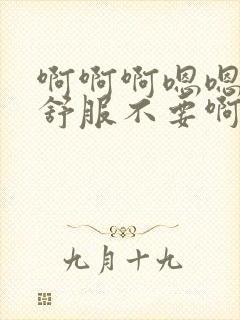 啊啊啊嗯嗯
舒服不要啊
九月十九